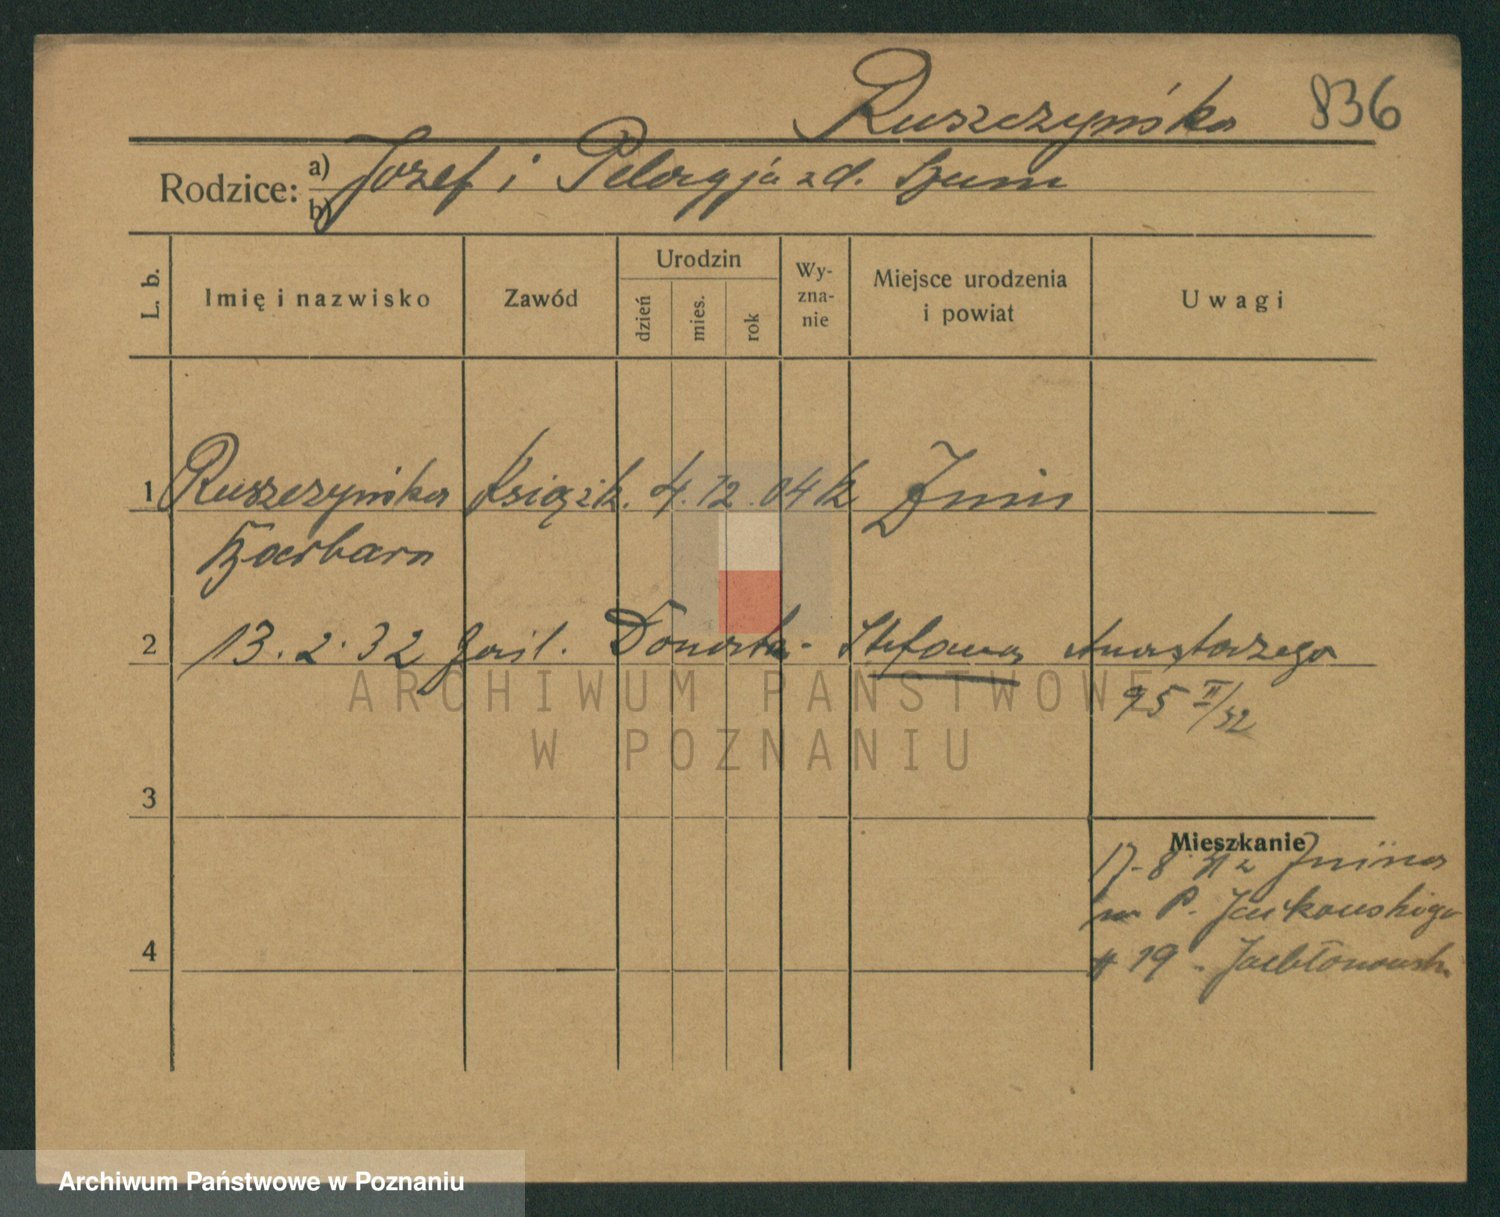 Ruszczyńska 836
Rodzice: a) Józef i Pelagja z d. Szum
b)
L. b. Imię i nazwisko Zawód Urodzin dzień mies. rok Wyznanie Miejsce urodzenia i powiat Uwagi
1 Ruszczyńska Książk. 4. 12. 04 k Żnin
Barbara
2 13. 2. 32 zaśl. Stefana Anastazego
95 II/32
3
Mieszkanie
17-8 Żnina
P. Jackowskiego
4 19
ARCHIWUM PAŃSTWOWE
W POZNANIU
Archiwum Państwowe w Poznaniu